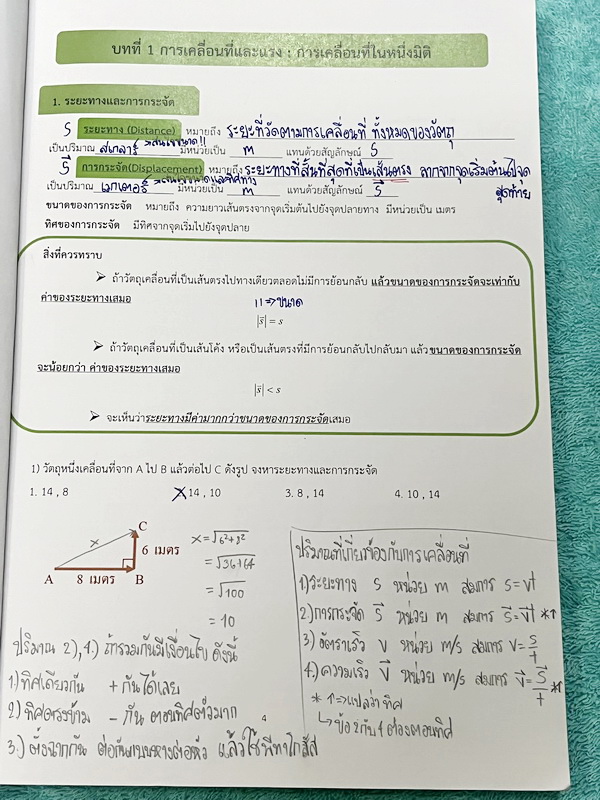 บทที่ 1 การเคลื่อนที่และแรง : การเคลื่อนที่ในหนึ่งมิติ
1. ระยะทางและการกระจัด
S ระยะทาง (Distance) หมายถึง ระยะที่วัดตามการเคลื่อนที่ ทั้งหมดของวัตถุ
เป็นปริมาณ สเกลาร์ มีหน่วยเป็น m แทนด้วยสัญลักษณ์ S
S⃗ การกระจัด(Displacement) หมายถึง ระยะทางที่สั้นที่สุดที่เป็นเส้นตรง ลากจากจุดเริ่มต้นไปจุดสุดท้าย
เป็นปริมาณ เวกเตอร์ มีหน่วยเป็น m แทนด้วยสัญลักษณ์ S⃗
ขนาดของการกระจัด หมายถึง ความยาวเส้นตรงจากจุดเริ่มต้นไปยังจุดปลายทาง มีหน่วยเป็น เมตร
ทิศของการกระจัด มีทิศจากจุดเริ่มไปยังจุดปลาย
สิ่งที่ควรทราบ
➢ ถ้าวัตถุเคลื่อนที่เป็นเส้นตรงไปทางเดียวตลอดไม่มีการย้อนกลับ แล้วขนาดของการกระจัดจะเท่ากับ
ค่าของระยะทางเสมอ
| | => ขนาด
|s⃗| = s
➢ ถ้าวัตถุเคลื่อนที่เป็นเส้นโค้ง หรือเป็นเส้นตรงที่มีการย้อนกลับไปกลับมา แล้วขนาดของการกระจัด
จะน้อยกว่า ค่าของระยะทางเสมอ
|s⃗| < s
➢ จะเห็นว่าระยะทางมีค่ามากกว่าขนาดของการกระจัดเสมอ
1) วัตถุหนึ่งเคลื่อนที่จาก A ไป B แล้วต่อไป C ดังรูป จงหาระยะทางและการกระจัด
1. 14 , 8 2. 14 , 10 3. 8 , 14 4. 10 , 14
C
x
6 เมตร
A 8 เมตร B
x = √6²+8²
= √36+64
= √100
= 10
ปริมาณที่เกี่ยวข้องกับการเคลื่อนที่
1.) ระยะทาง S หน่วย m สมการ S = vt
2.) การกระจัด S⃗ หน่วย m สมการ S⃗ = v⃗t *↑
3.) อัตราเร็ว v หน่วย m/s สมการ v = S/t
4.) ความเร็ว v⃗ หน่วย m/s สมการ v⃗ = S⃗/t *↑
* ↑ => แปลว่าทิศ
↳ ข้อ 2 กับ 4 ต้องตอบทิศ
ปริมาณ 2), 4.) ถ้ารวมกันมีเงื่อนไข ดังนี้
1) ทิศเดียวกัน + กันได้เลย
2) ทิศตรงข้าม - กัน ตอบทิศตัวมาก
3.) ตั้งฉากกัน ต่อกันแบบหางต่อหัว แล้วใช้พีทาโกรัส
4